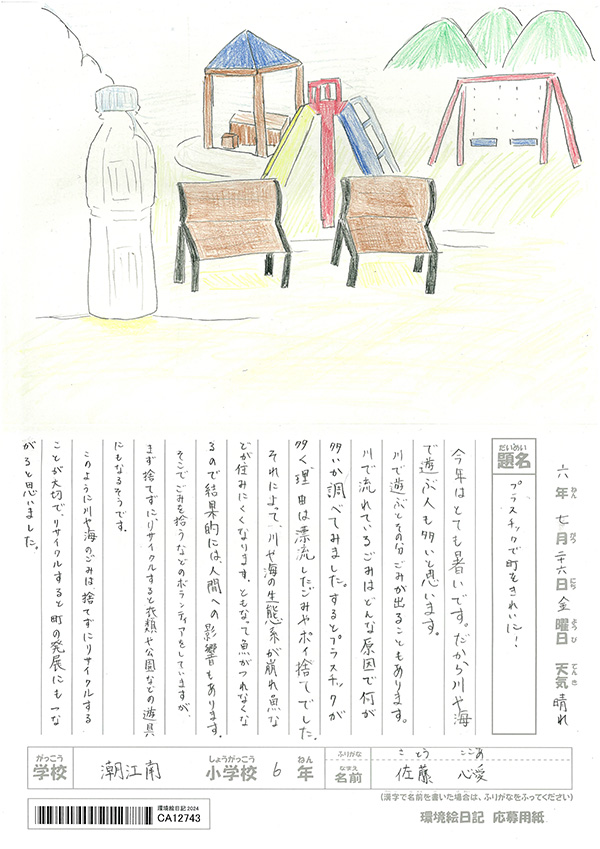 六年 七月二十六日 金曜日 天気 晴れ
ねん がつ にち ようび てんき
だいめい
題名 プラスチックで町をきれいに!
今年はとても暑いです。だから川や海
で遊ぶ人も多いと思います。
川で遊ぶとその分ごみが出ることもあります。
川で流れているごみはどんな原因で何が
多いか調べてみました。するとプラスチックが
多く理由は漂流したごみやポイ捨てでした。
それによって、川や海の生態系が崩れ魚な
どが住みにくくなります。ともなって魚がつれなくな
るので結果的には、人間への影響もあります。
そこでごみを拾うなどのボランティアをしていますが、
まず捨てずに、リサイクルすると衣類や公園などの遊具
にもなるそうです。
このように川や海のごみは捨てずにリサイクルする
ことが大切で、リサイクルすると町の発展にもつな
がると思いました。
がっこう しょうがっこう ねん ふりがな さとう ここあ
学校 潮江南 小学校 6年 なまえ 名前 佐藤 心愛
(漢字で名前を書いた場合は、ふりがなをふってください)
環境絵日記2024
CA12743
環境絵日記 応募用紙